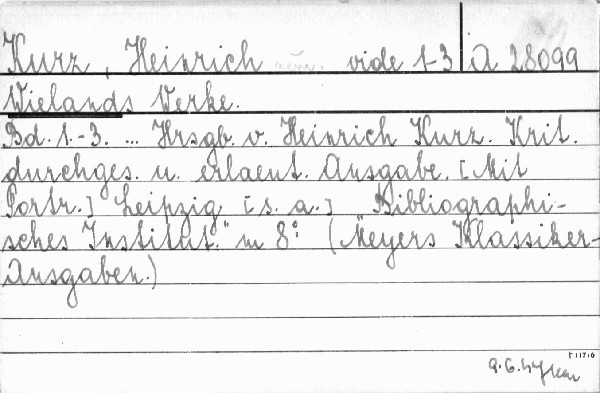 Kurz, Heinrich vide 1-3 A 28099
Wielands Werke.
Bd. 1.-3. ... Hrsgb. v. Heinrich Kurz. Krit.
durchges. u. erlaeut. Ausgabe. [Mit
Portr.] Leipzig [s. a.] "Bibliographi-
sches Institut." in 8°. (Meyers Klassiker-
Ausgaben.)
F 11710